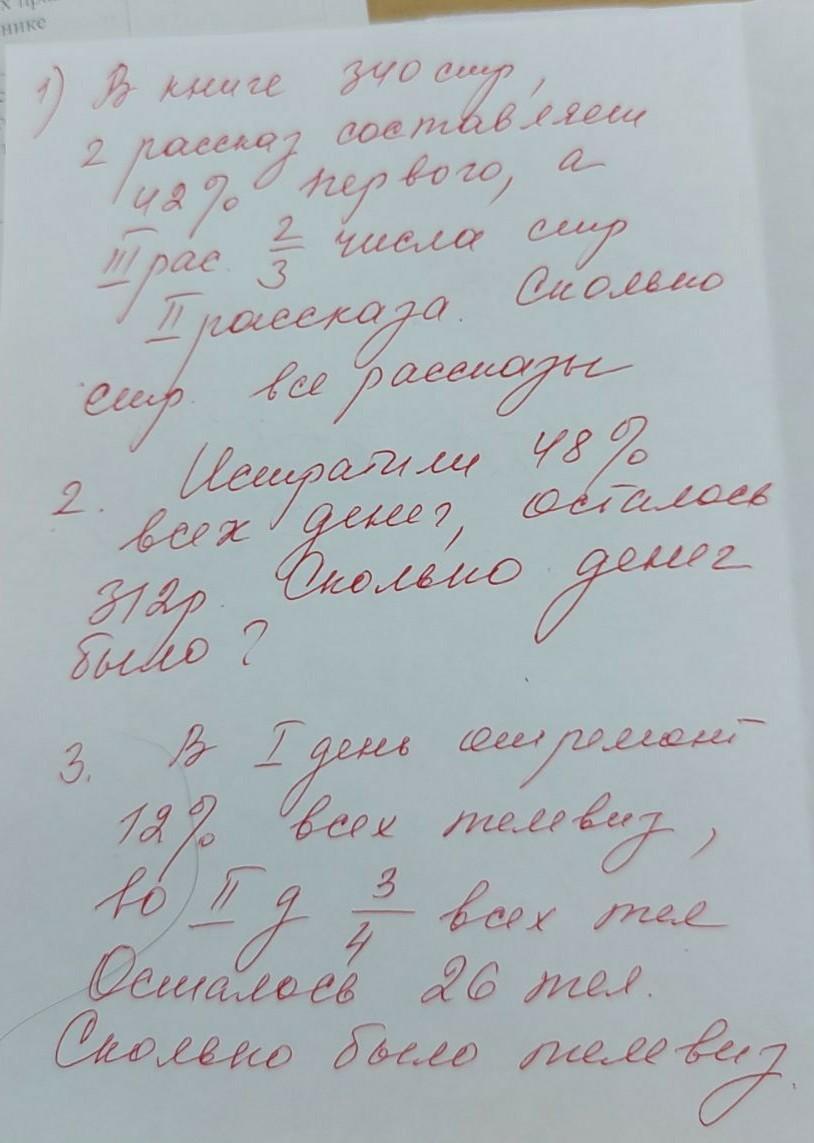 нике
1) В книге 340 стр,
2 рассказ составляет
42% первого, а
III рас. 2/3 числа стр
II рассказа. Сколько
стр. все рассказы
2. Истратили 48%
всех денег, осталось
312р. Сколько денег
было?
3. В I день отремонт
12% всех телевиз,
во II д 3/4 всех тел
Осталось 26 тел.
Сколько было телевиз.